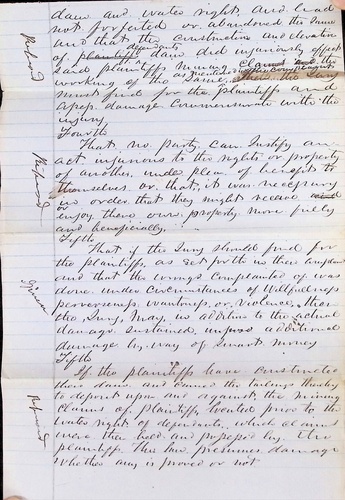 dam and water right, and had
not forfeited or abandoned the same
and that the construction and elevation
defendants
of plaintiffs dam did injuriously affect
said plaintiffs mining claims and the
working of the same, that the Jury
must find for the plaintiffs and
assess damage commensurate with the
injury
Refused
Fourth
That no party can justify an
act injurious to the rights or property
of another, under plea of benefit to
themselves or that it was necessary
in order that they might receive and
enjoy there own property more fully
and beneficially.
Refused
Fifth
That if the Jury should find for
the plaintiffs, as set forth in their complaint
and that the wrongs complained of was
done under circumstances of Willfulness
perverseness, wantonness, or violence, then
the Jury, may, in addition to the actual
damage sustained, impose additional
damage by way of smart money
Given
Fifth
If the plaintiffs have constructed
there dam and caused the tailings thereby
to deposit upon and against the mining
claims of plaintiffs, located prior to the
water rights of defendants, which claims
were then held and possessed by the
plaintiffs The law presumes damage
Whether any is proved or not
Refused